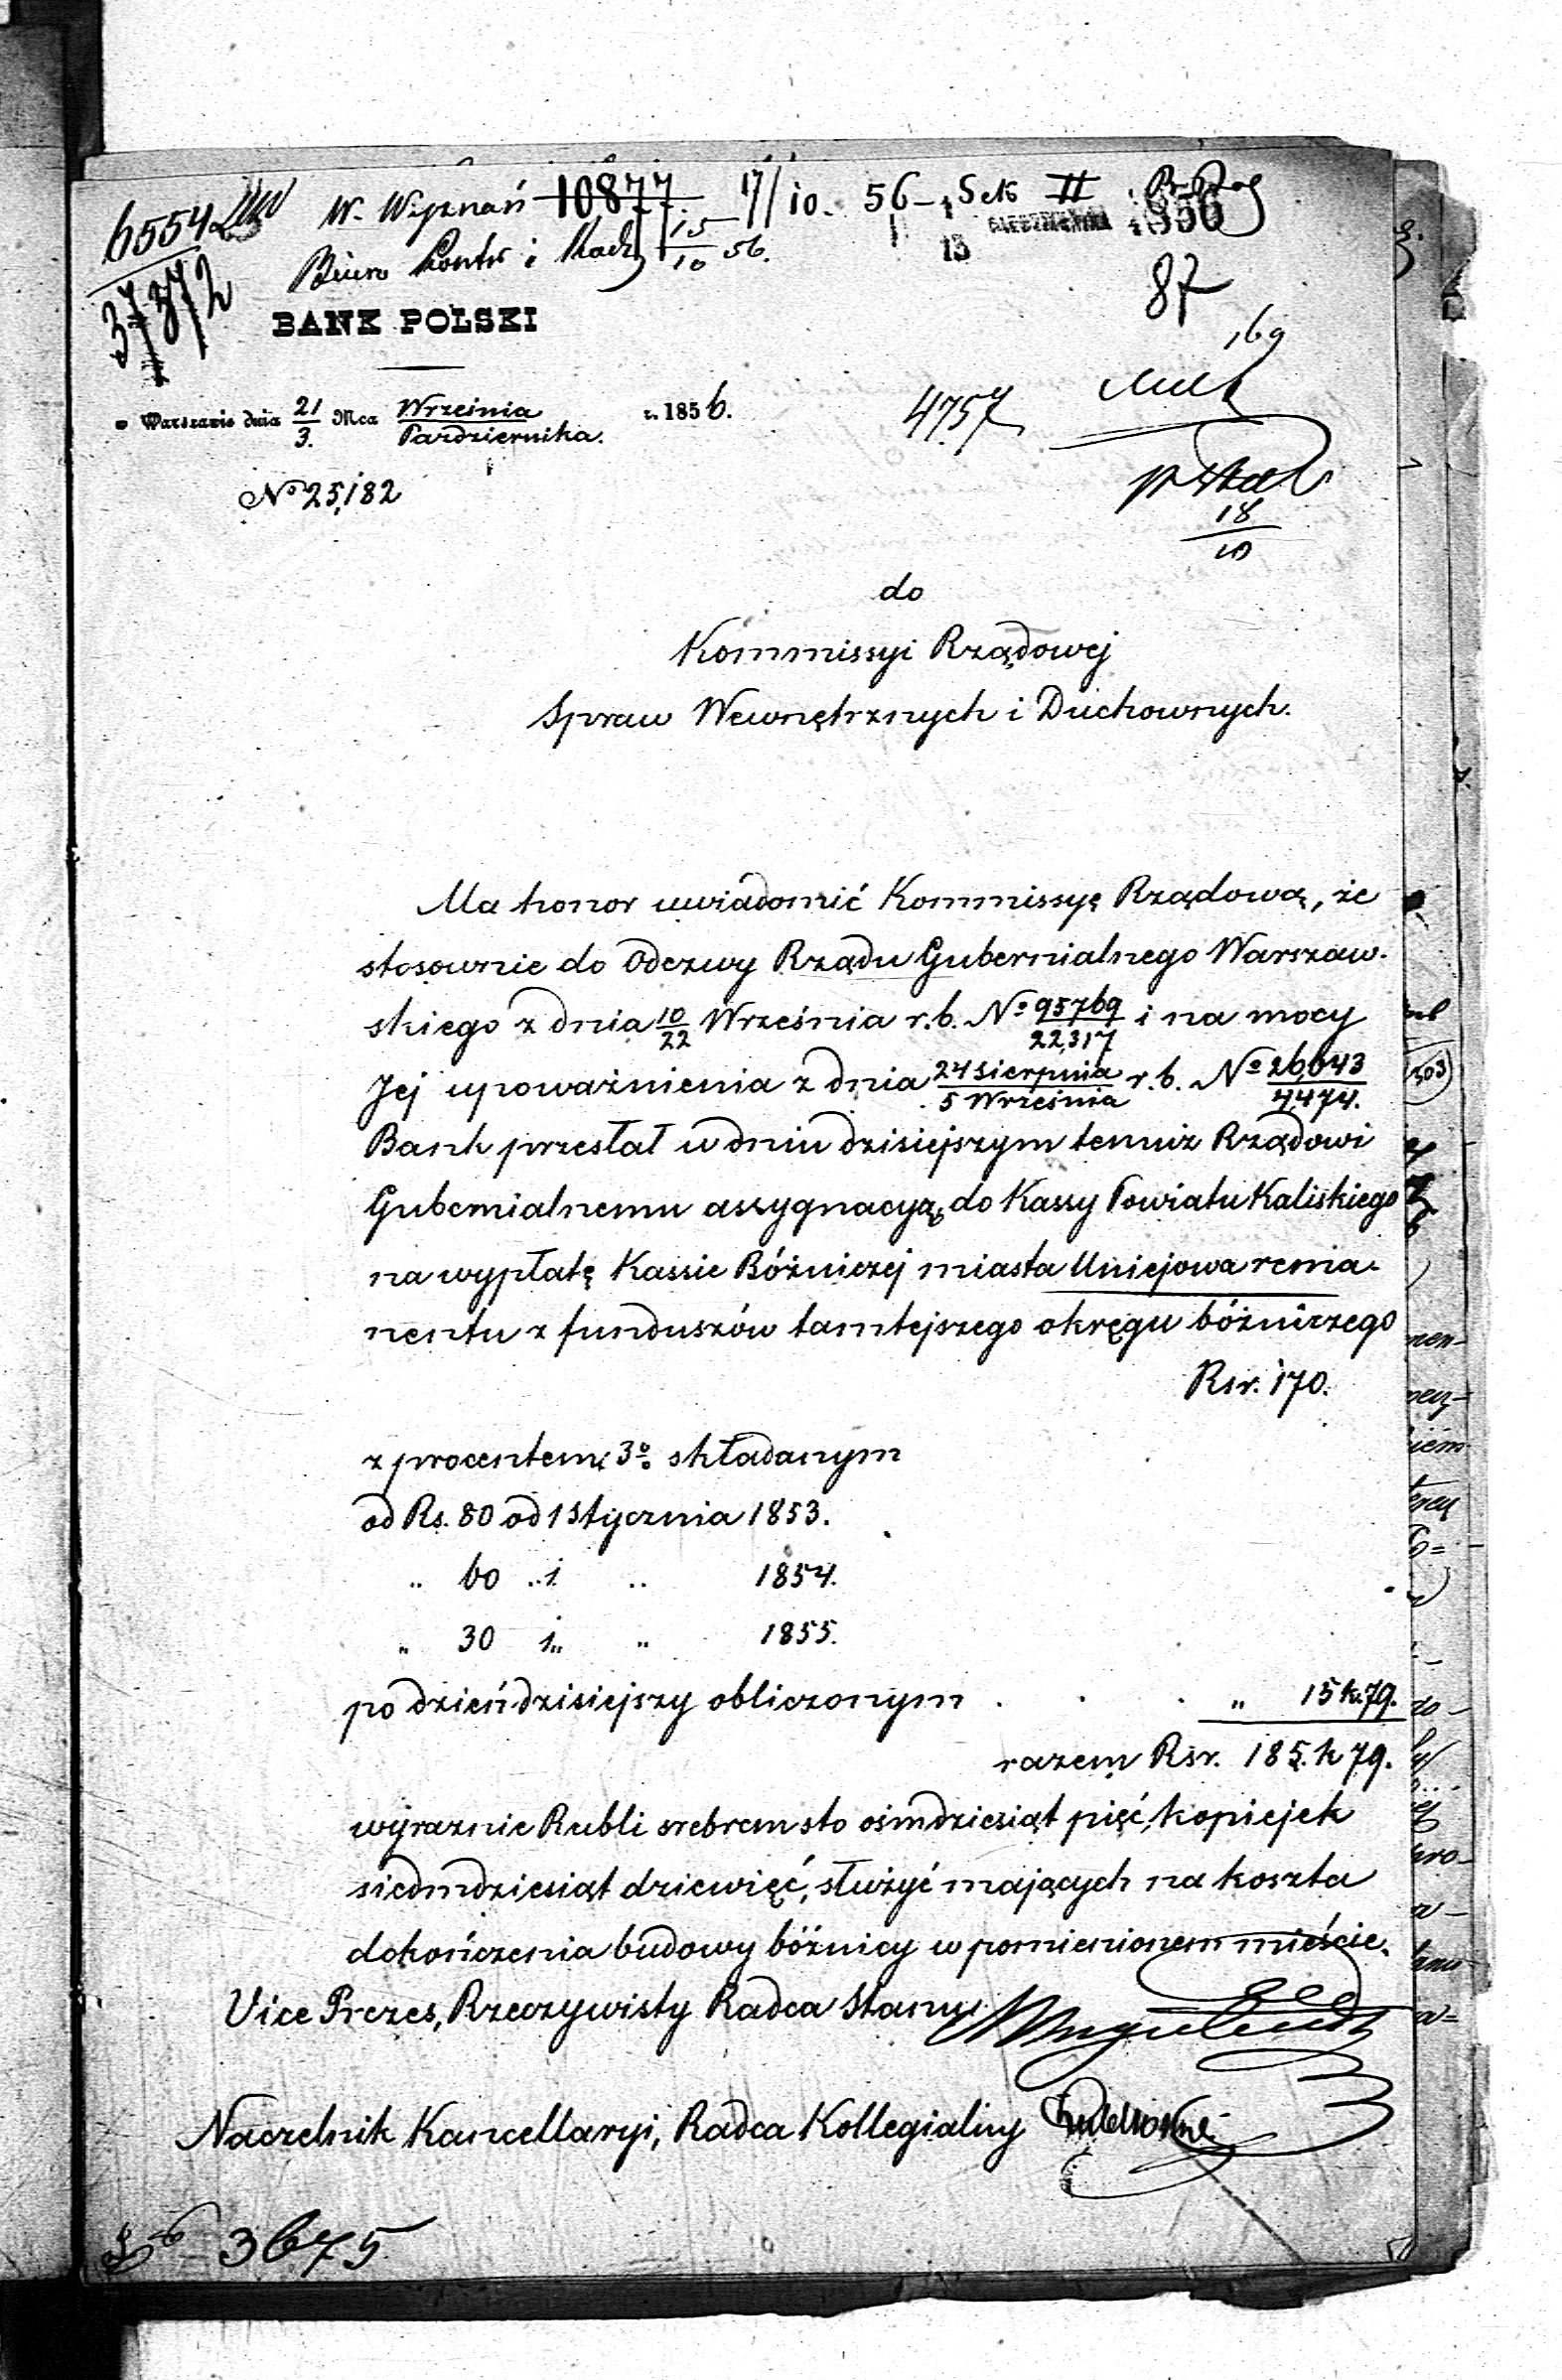 6554
37372
W. Wyznań 10877. 17/10. 56 – Sek II
Biuro Kontr i Rach 15/10 56.
13 1856
87
169
BANK POLSKI
w Warszawie dnia 21/3. Mca Września/Października. r. 1856.
4757
No 25,182
18/10
do
Kommissyi Rządowej
Spraw Wewnętrznych i Duchownych.
Ma honor uwiadomić Kommissyę Rządową, że
stosownie do Odezwy Rządu Gubernialnego Warszaw-
skiego z dnia 10/22 Września r.b. No 95769/22,317 i na mocy
Jej upoważnienia z dnia 24 Sierpnia/5 Września r.b. No 26,643/4,474.
Bank przesłał w dniu dzisiejszym temuż Rządowi
Gubernialnemu assygnacyą do Kassy Powiatu Kaliskiego
na wypłatę Kassie Bóżniczej miasta Uniejowa rema-
nentu z funduszów tamtejszego okręgu bóżniczego
Rsr. 170.
z procentem 3% składanym
od Rs. 80 od 1 Stycznia 1853.
„ 60 „ 1 „ 1854.
„ 30 1 „ „ 1855.
po dzień dzisiejszy obliczonym . . . „ 15 k. 79.
razem Rsr. 185. k 79.
wyraznie Rubli srebrem sto ośmdziesiąt pięć, kopiejek
siedmdziesiąt dziewięć, służyć mających na koszta
dokończenia budowy bóżnicy w pomienionem mieście.
Vice Prezes, Rzeczywisty Radca Stanu
Naczelnik Kancellaryi, Radca Kollegialny
3675